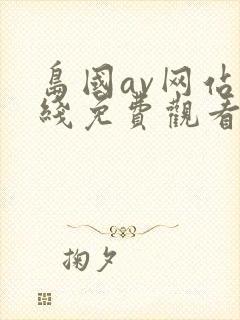 島國av网估
綫免費觀看
掬夕